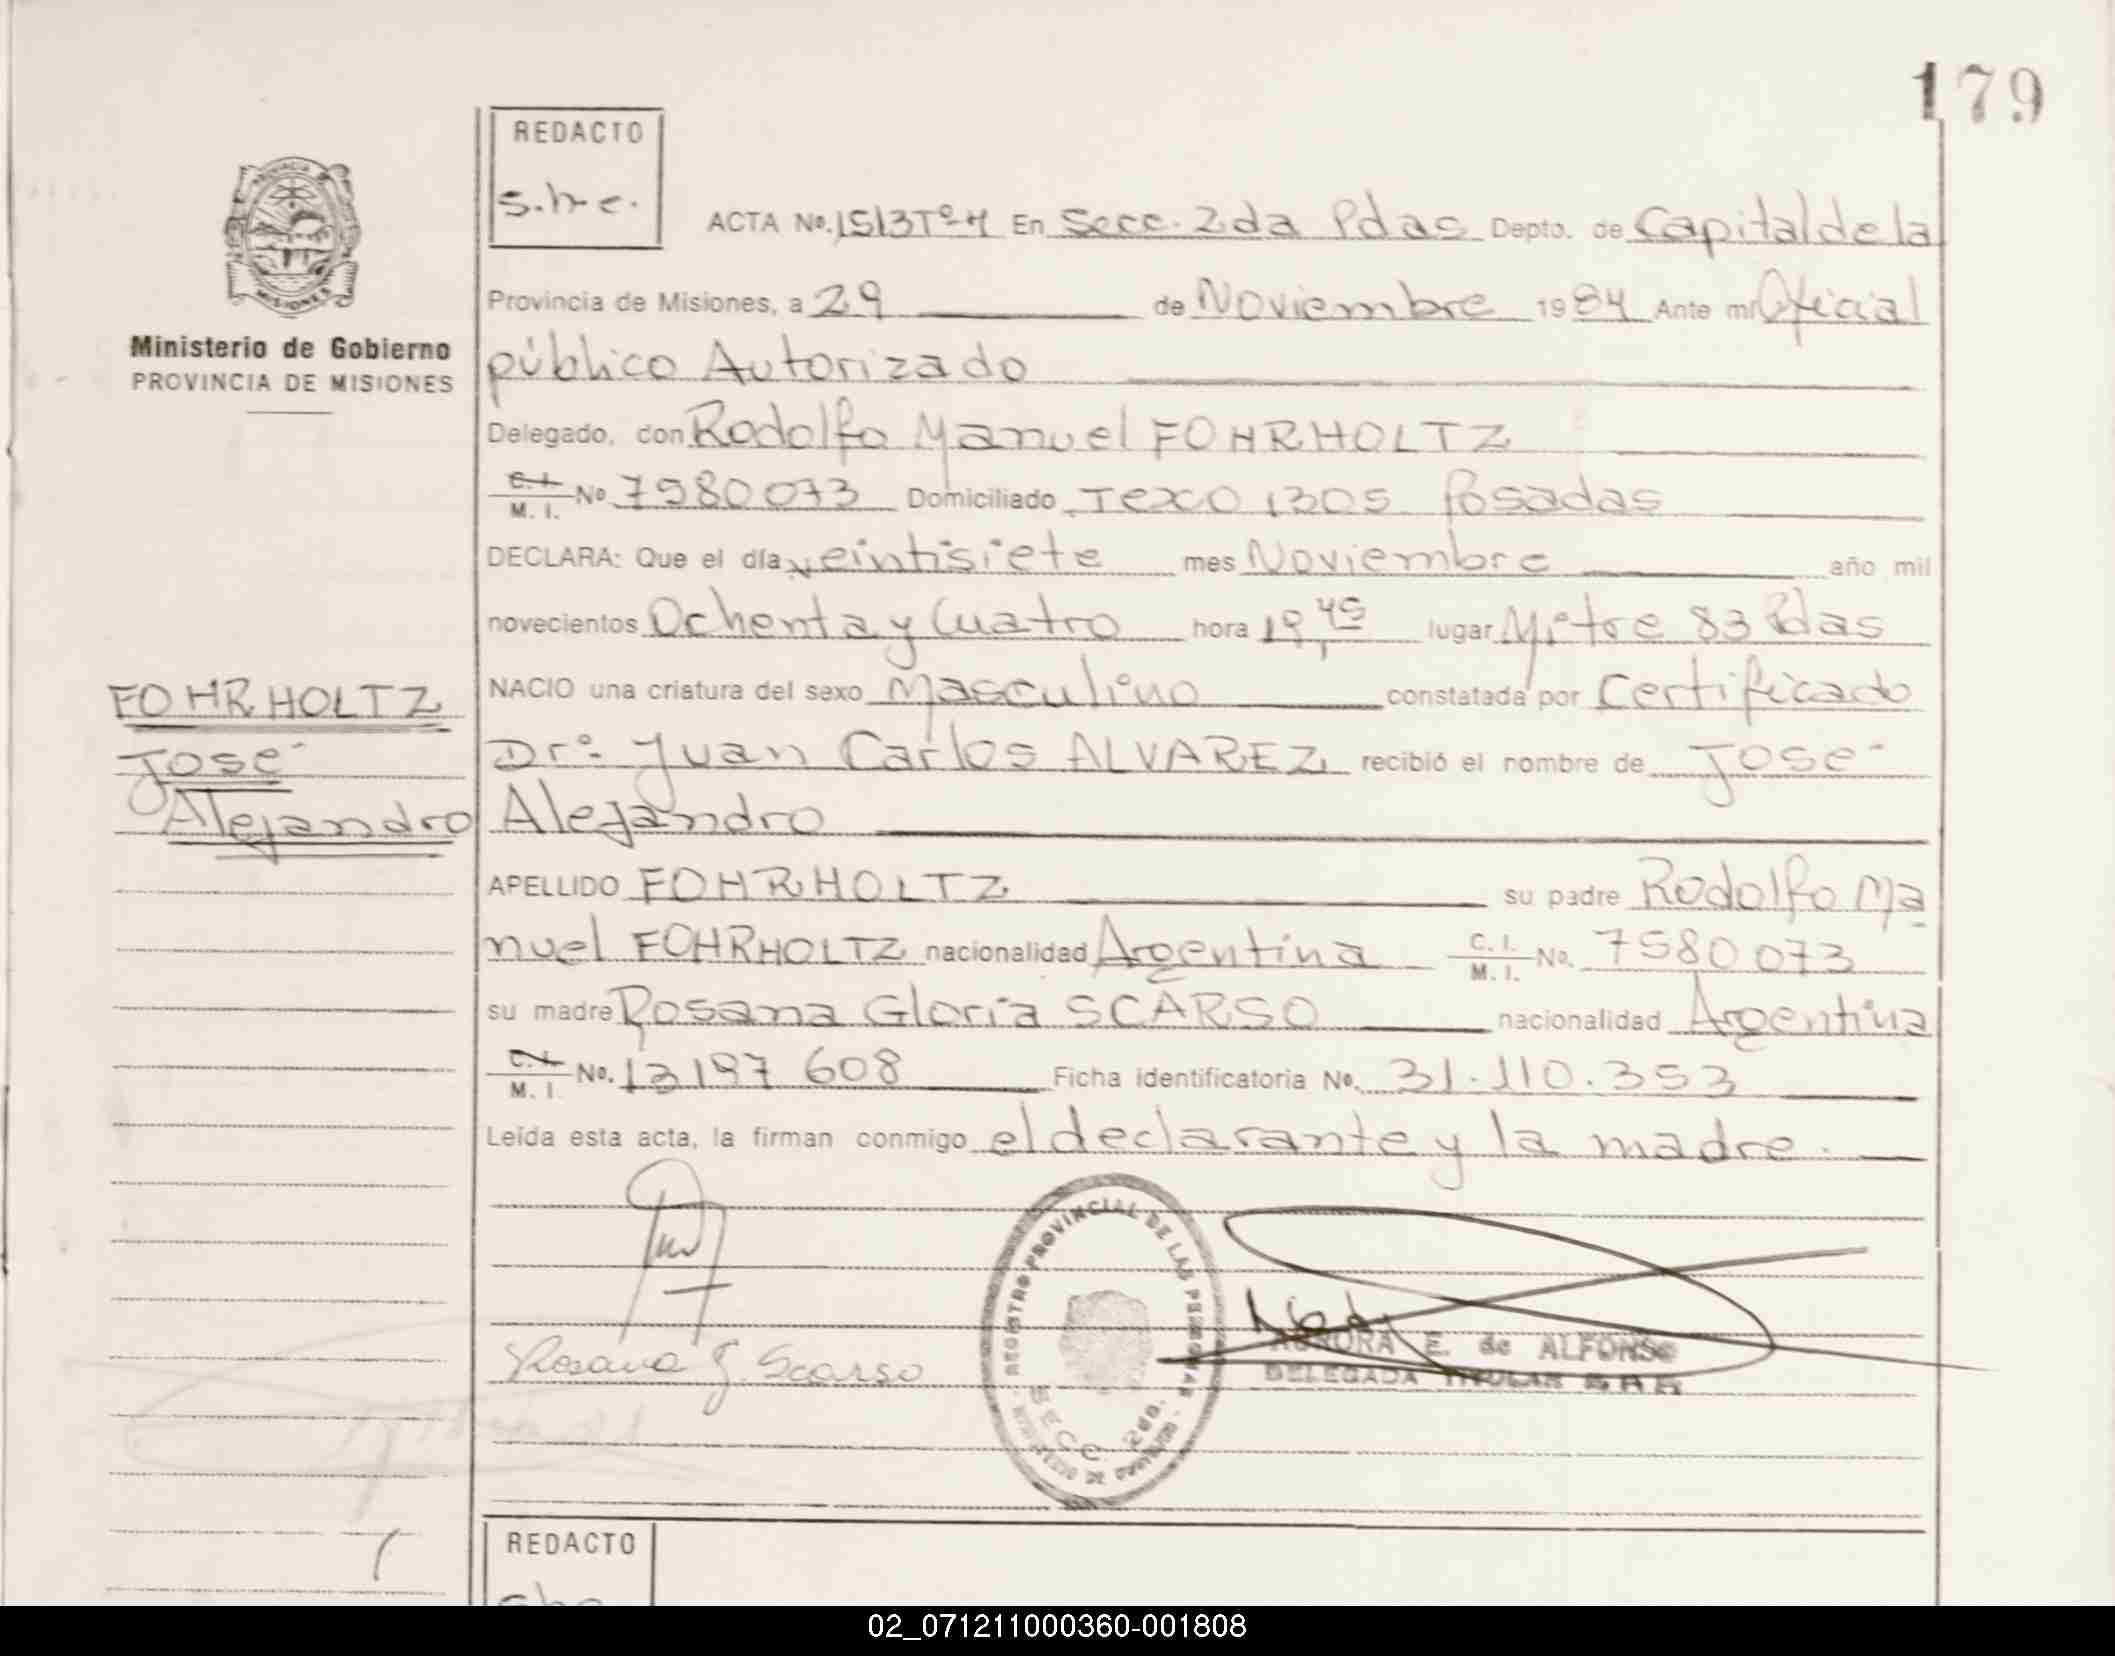 179
REDACTO
s.h.e.
PROVINCIA
MISIONES
Ministerio de Gobierno
PROVINCIA DE MISIONES
ACTA No. 1513 Tº 4 En Secc. 2da Pdas Depto. de Capital de la
Provincia de Misiones, a 29 de Noviembre 1984 Ante mi Oficial
público Autorizado
Delegado, con Rodolfo Manuel FOHRHOLTZ
C. I. M. I. No 7580073 Domiciliado Texo 1305 Posadas
DECLARA: Que el día veintisiete mes Noviembre año mil
novecientos Ochenta y Cuatro hora 19,45 lugar Mitre 83 Pdas
NACIO una criatura del sexo Masculino constatada por Certificado
Dr: Juan Carlos ALVAREZ recibió el nombre de José
Alejandro
FOHRHOLTZ
José
Alejandro
APELLIDO FOHRHOLTZ su padre Rodolfo Ma
nuel FOHRHOLTZ nacionalidad Argentina C. I. M. I. No. 7580073
su madre Rosana Gloria SCARSO nacionalidad Argentina
C. I. M. I. No. 13197 608 Ficha identificatoria No. 31.110.353
Leída esta acta, la firman conmigo el declarante y la madre.
Rosana G. Scarso
REGISTRO PROVINCIAL DE LAS PERSONAS
SECC. 2da.
MINISTERIO DE GOBIERNO
AURORA E. de ALFONSO
DELEGADA TITULAR
REDACTO
02_071211000360-001808